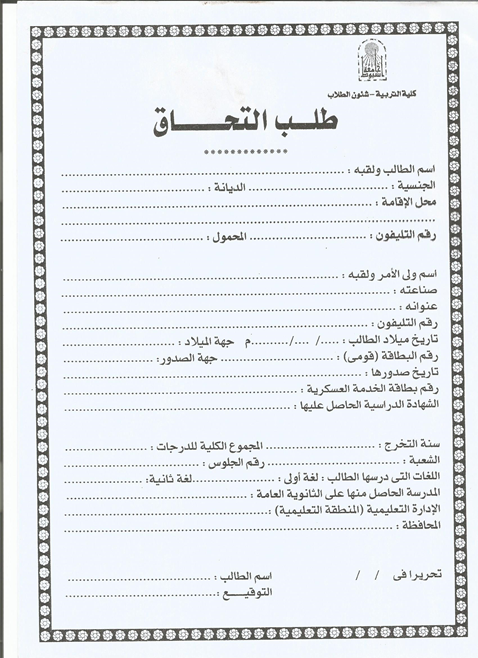 جامعة أسيوط
كلية التربية - شئون الطلاب
طلــب التحـــاق
اسم الطالب ولقبه : ........................................................................
الجنسية : ................................... الديانة : ...................................
محل الإقامة : ........................................................................
........................................................................................
رقم التليفون : .............................. المحمول : ...................................
اسم ولى الأمر ولقبه : ........................................................................
صناعته : ........................................................................
عنوانه : ........................................................................
رقم التليفون : ........................................................................
تاريخ ميلاد الطالب : ...../ ..../..........م جهة الميلاد : .............................
رقم البطاقة (قومى) : .............................. جهة الصدور: ..............................
تاريخ صدورها : ........................................................................
رقم بطاقة الخدمة العسكرية : ............................................................
الشهادة الدراسية الحاصل عليها : ............................................................
سنة التخرج : .............................. المجموع الكلية للدرجات : ..............................
الشعبة : .............................. رقم الجلوس : ..............................
اللغات التى درسها الطالب : لغة أولى : ....................لغة ثانية: ....................
المدرسة الحاصل منها على الثانوية العامة : ..................................................
الإدارة التعليمية (المنطقة التعليمية) : ..................................................
المحافظة : ........................................................................
تحريرا فى / / اسم الطالب : ...................................
التوقيـــع : ...................................